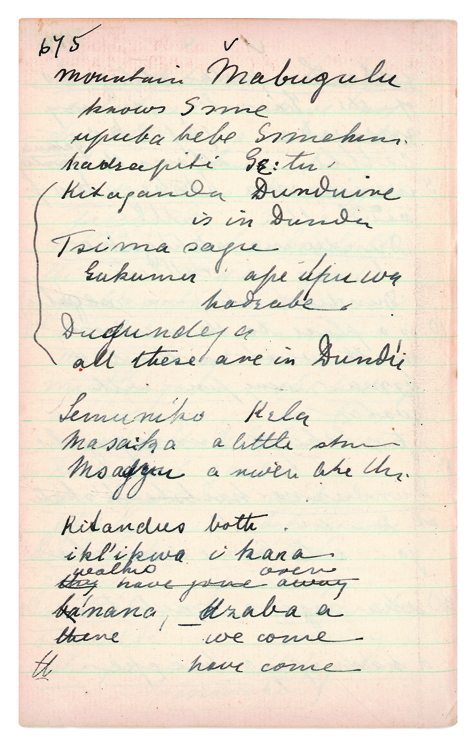 675
mountain Mabugulu
knows Ssme
upuba bebe
hadzapiti
Kitaganda Dunduine
is in Dundu
Tsima sagu
ape upuwa
hadzabe.
Dugundega
all these are in Dundu
Semuniko Kela
Masaka a little
a river like
Kitandus both.
ikl'ikwa i kana
walked over
they have gone away
bánana, Uzaba a
there we come
have come